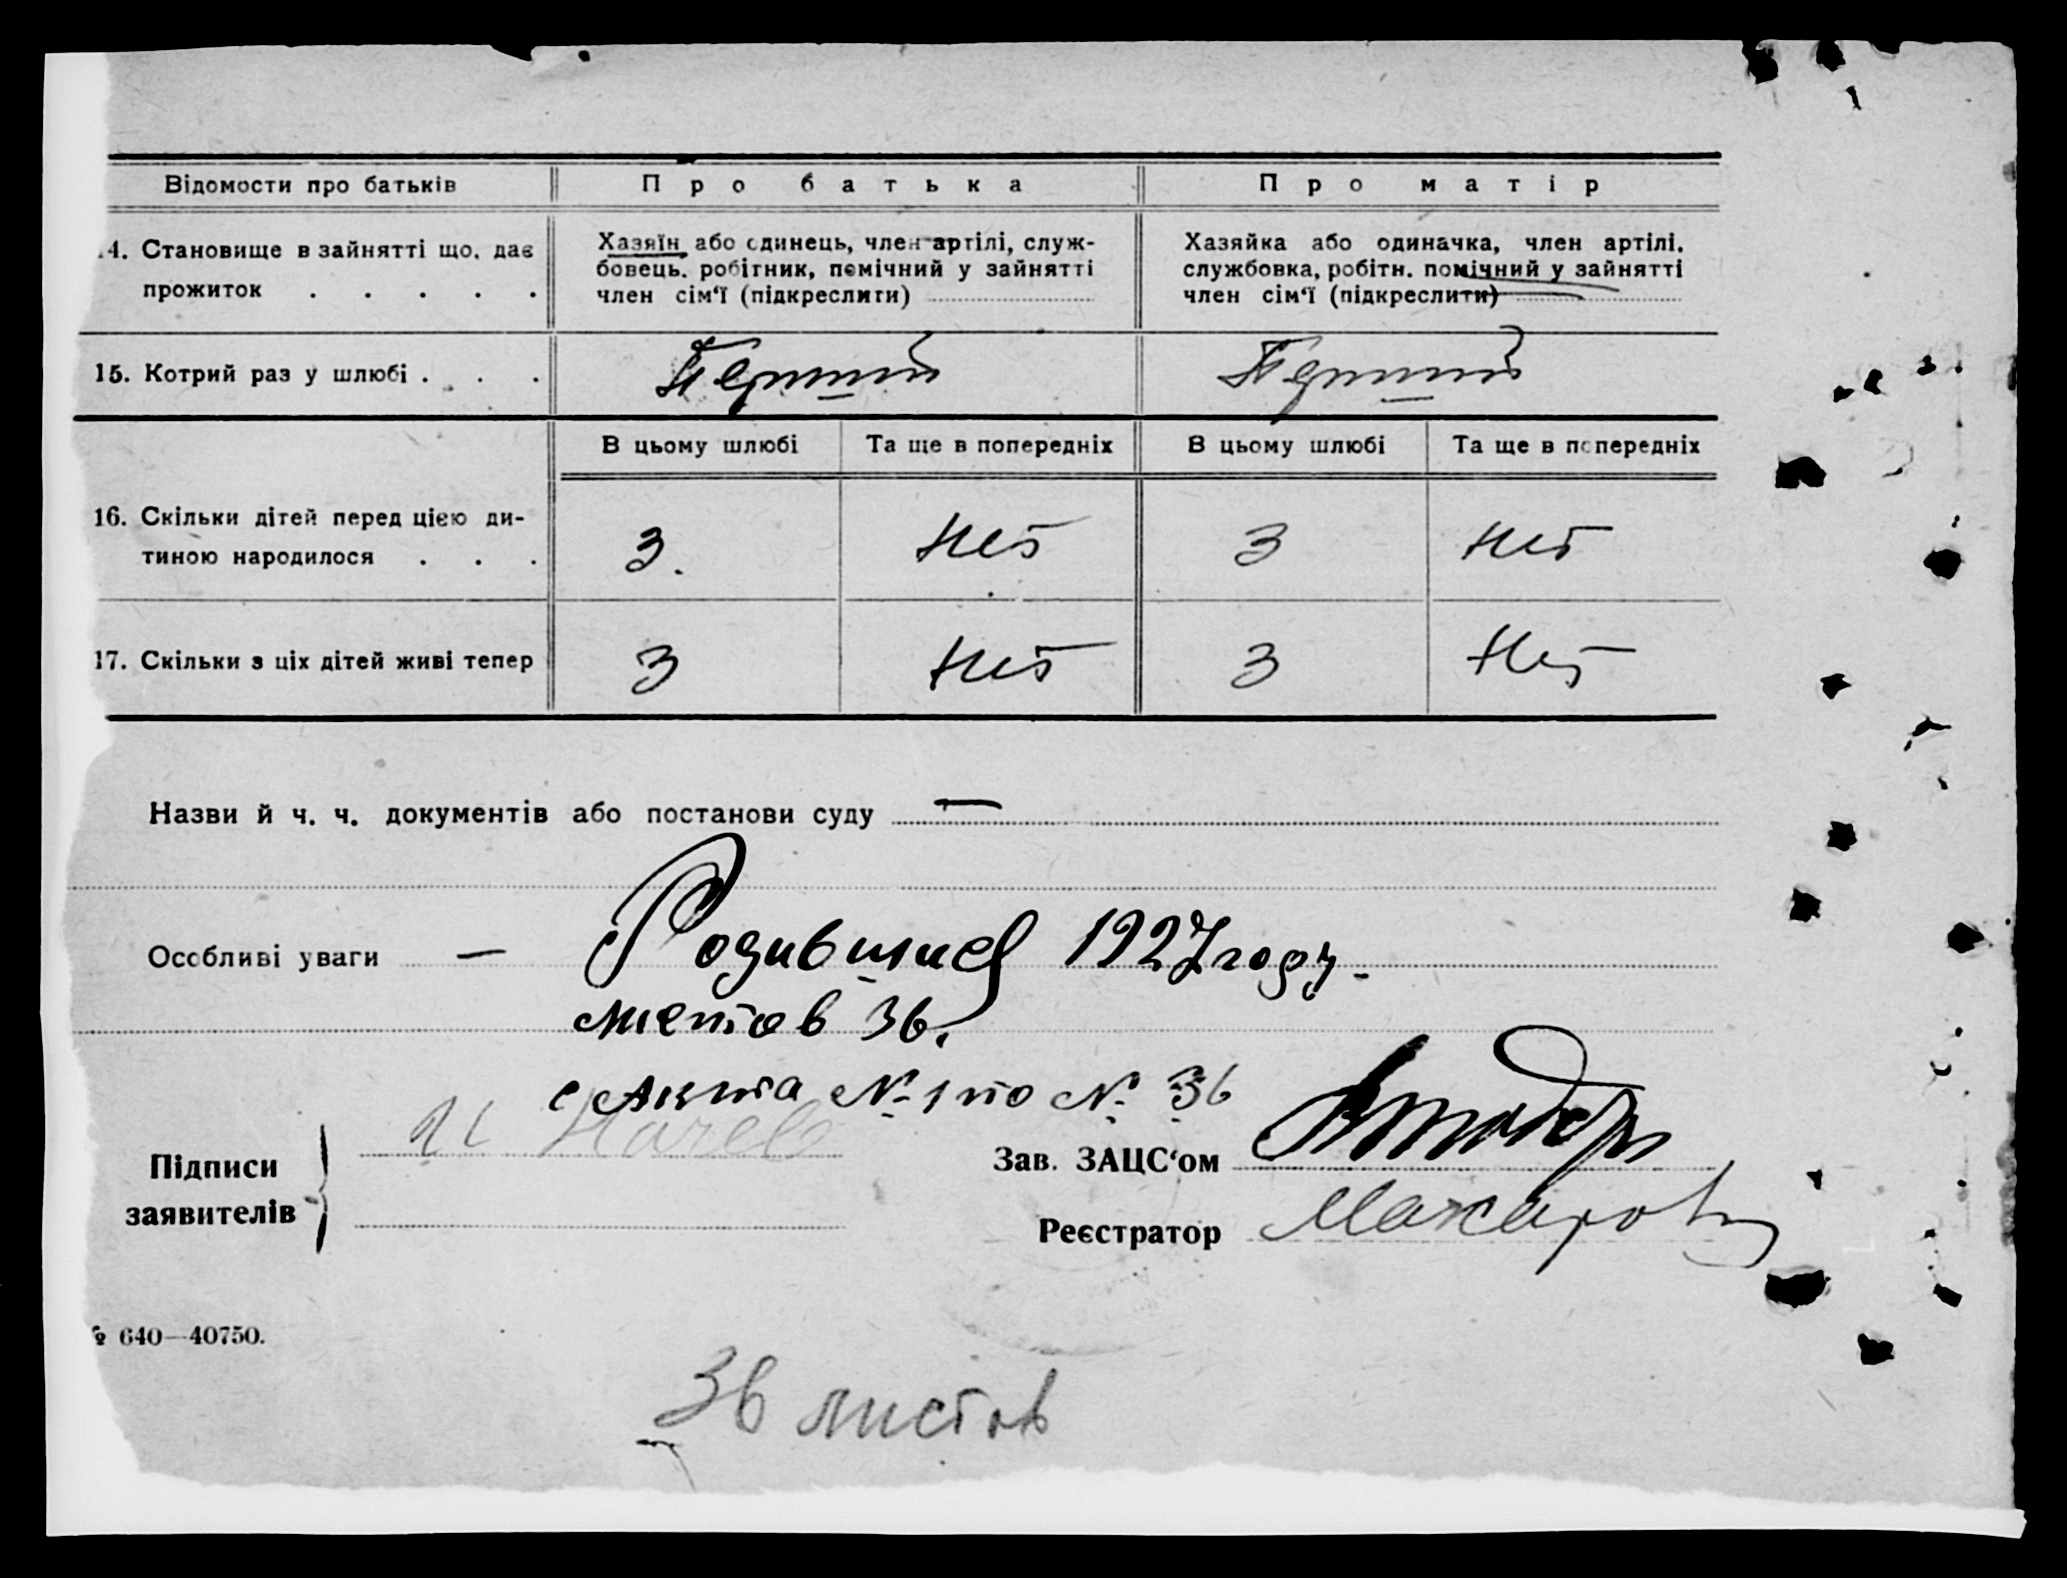 Відомости про батьків Про батька Про матір
14. Становище в зайнятті що дає прожиток . . . . .
Хазяїн або одинець, член артілі, служ-
бовець, робітник, помічний у зайнятті
член сім'ї (підкреслити)
Хазяйка або одиначка, член артілі,
службовка, робітн. помічний у зайнятті
член сім'ї (підкреслити)
15. Котрий раз у шлюбі . . . Первый Первый
В цьому шлюбі Та ще в попередніх В цьому шлюбі Та ще в попередніх
16. Скільки дітей перед цією ди-
тиною народилося . . . 3. Нет 3 Нет
17. Скільки з ціх дітей живі тепер 3 Нет 3 Нет
Назви й ч. ч. документів або постанови суду —
Особливі уваги — Родившиеся 1927 году.
листов 36.
с Акта № 1 по № 36
Підписи
заявителів
Зав. ЗАЦС'ом
Реєстратор Макаров
№ 640—40750.
36 листов